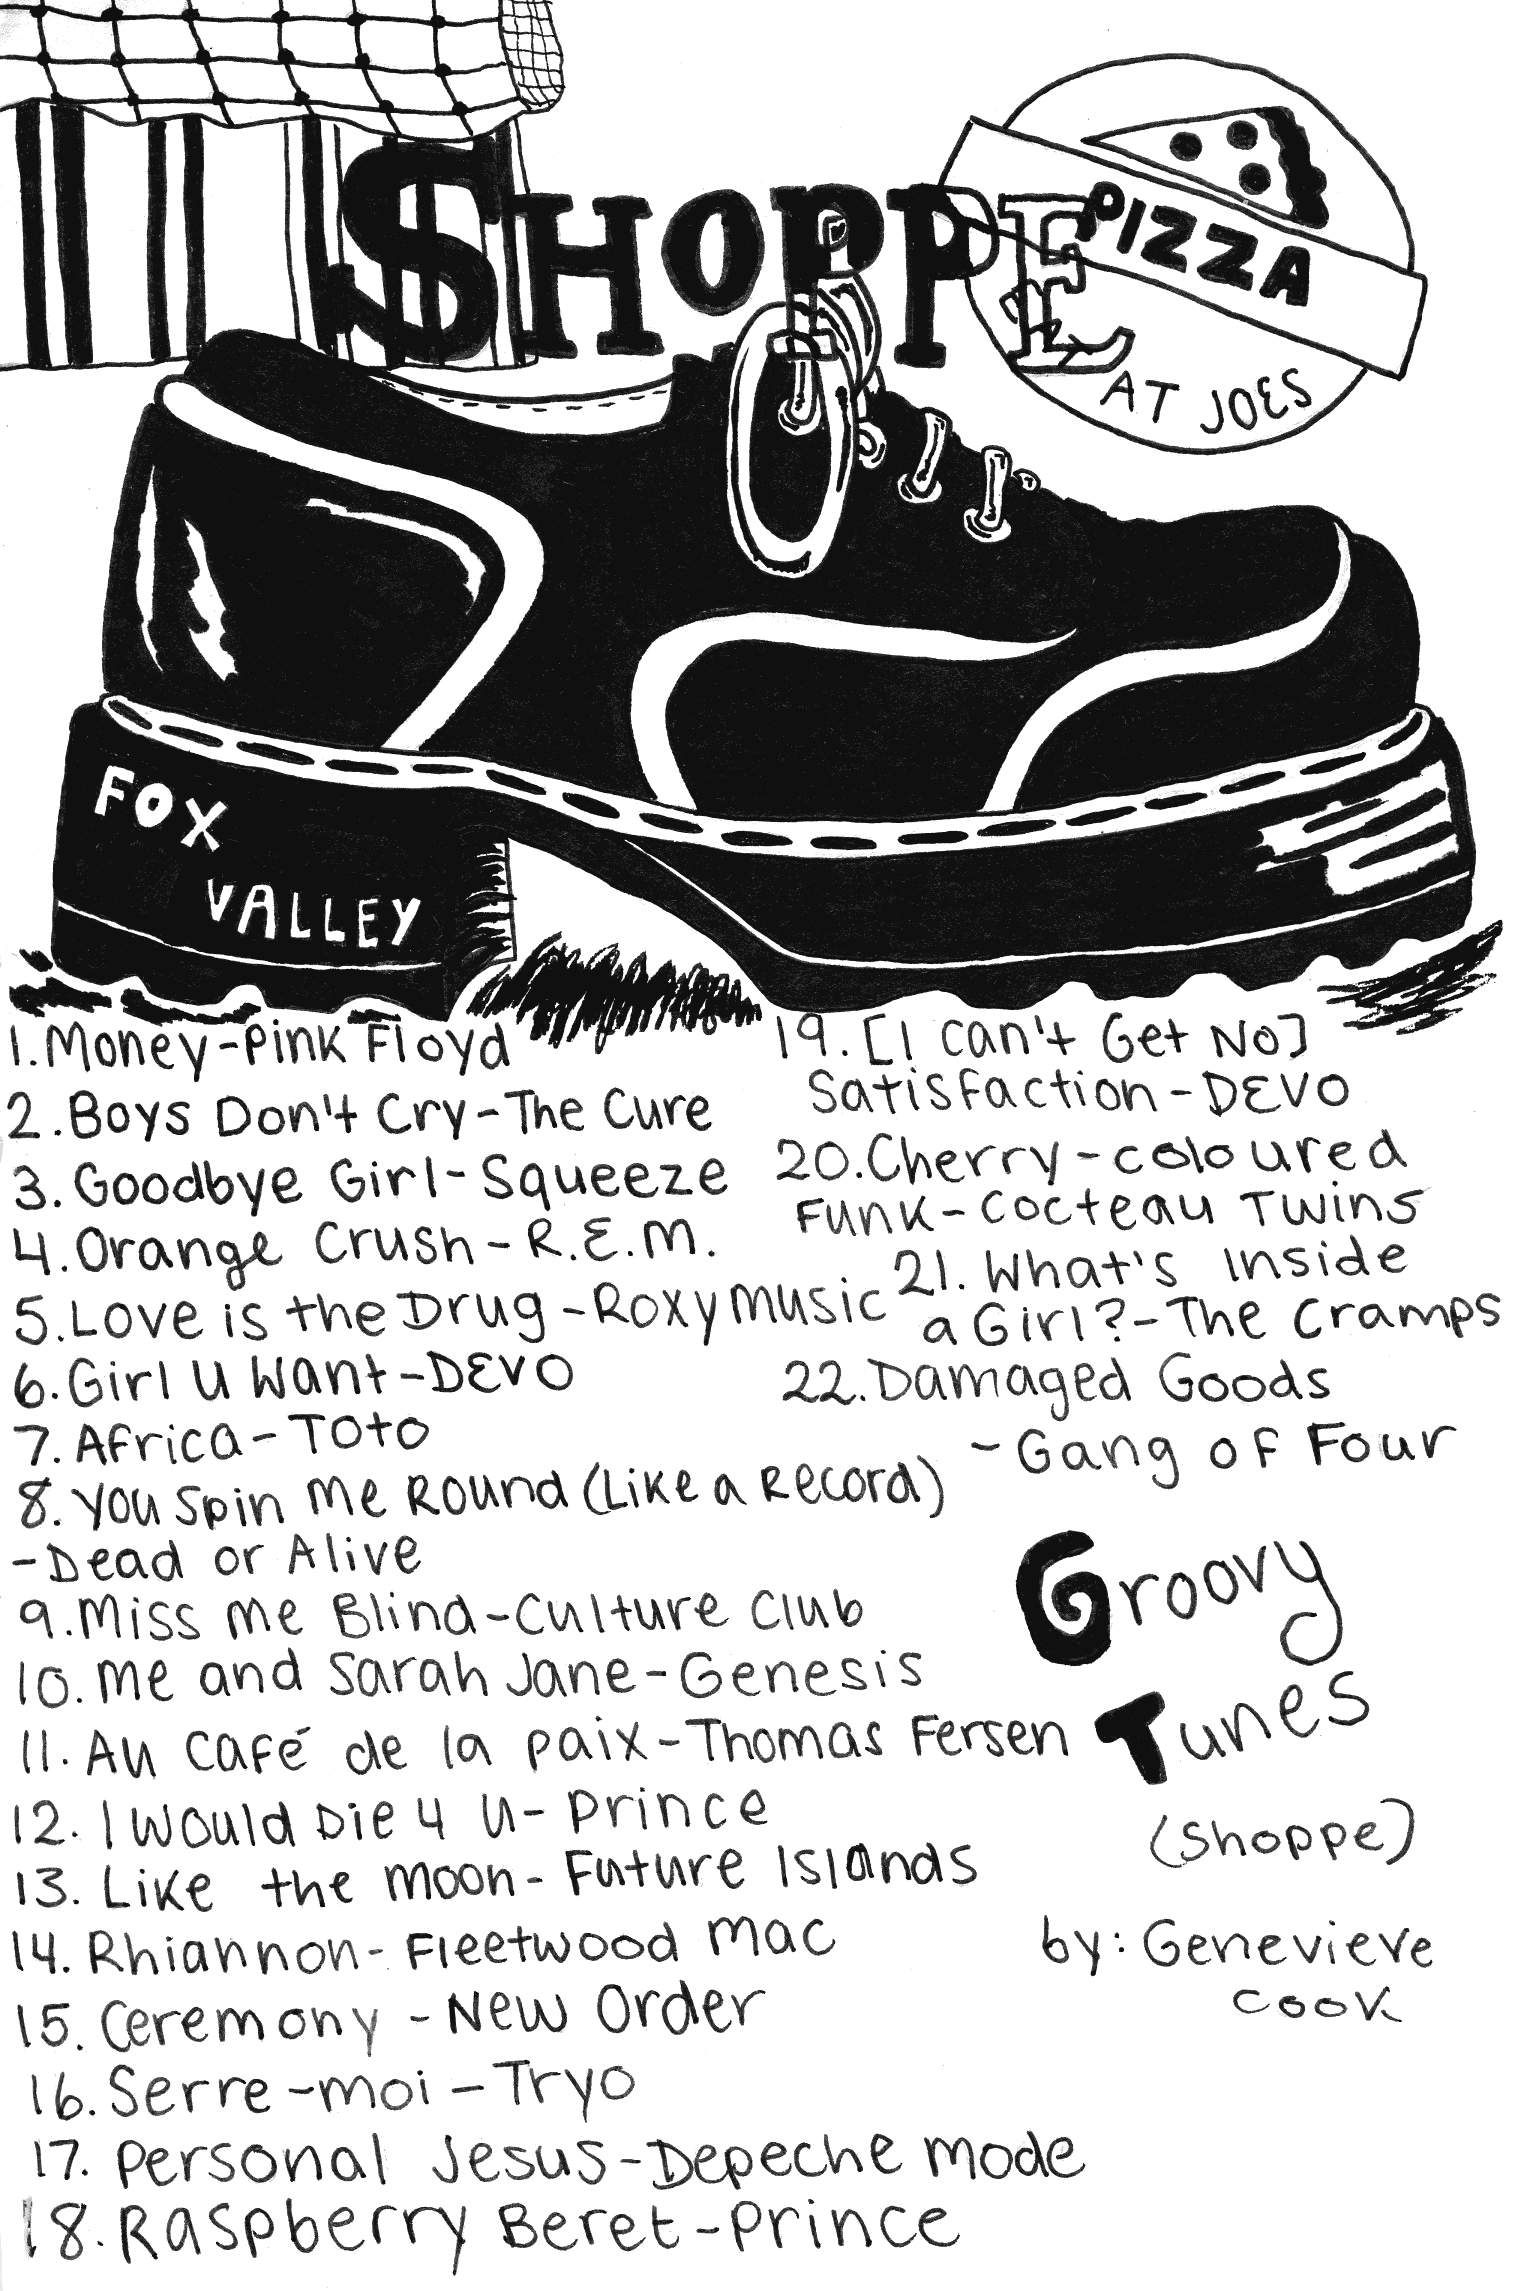 SHOPPE
PIZZA
AT JOES
FOX
VALLEY
1. Money - Pink Floyd
2. Boys Don't Cry - The Cure
3. Goodbye Girl - Squeeze
4. Orange Crush - R.E.M.
5. Love is the Drug - Roxy Music
6. Girl U Want - DEVO
7. Africa - Toto
8. You Spin Me Round (Like a Record)
- Dead or Alive
9. Miss Me Blind - Culture Club
10. Me and Sarah Jane - Genesis
11. Au Café de la paix - Thomas Fersen
12. I Would Die 4 U - Prince
13. Like the Moon - Future Islands
14. Rhiannon - Fleetwood Mac
15. Ceremony - New Order
16. Serre-moi - Tryo
17. Personal Jesus - Depeche Mode
18. Raspberry Beret - Prince
19. [I Can't Get No]
Satisfaction - DEVO
20. Cherry-coloured
Funk - Cocteau Twins
21. What's Inside
a Girl? - The Cramps
22. Damaged Goods
- Gang of Four
Groovy
Tunes
(Shoppe)
by: Genevieve
Cook